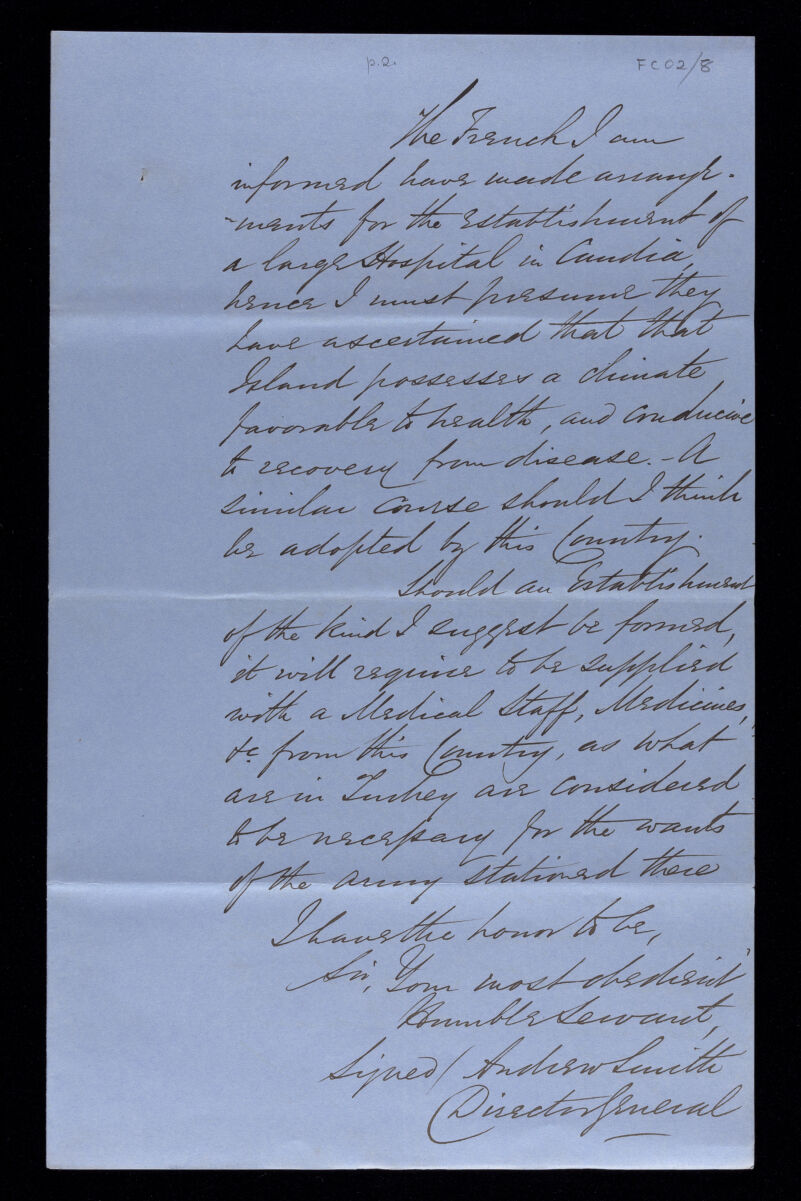 p.2. FC02/8
The French I am
informed have made arrange-
-ments for the establishment of
a large Hospital in Candia,
hence I must presume they
have ascertained that that
Island possesses a climate
favorable to health, and conducive
to recovery from disease. - A
similar course should I think
be adopted by this Country.
Should an Establishment
of the kind I suggest be formed,
it will require to be supplied
with a Medical Staff, Medicines,
&c. from this Country, as what
are in Turkey are considered
to be necessary for the wants
of the army stationed there
I have the honor to be,
Sir, Your most obedient
Humble Servant,
Signed / Andrew Smith
Director General